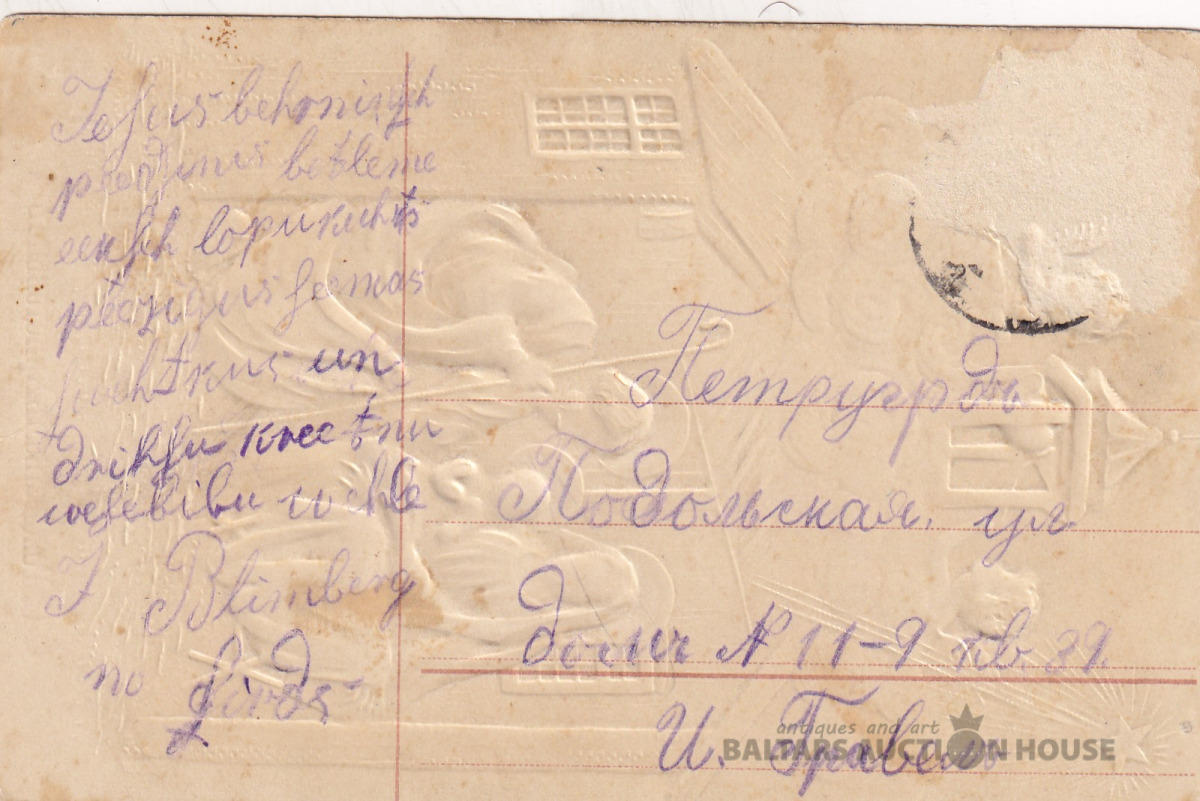 Jesus behrninsch
peedzims betleme
eeksch lopu kuhts
preezigus seemas
swehtkus un
drihsu kreetnu
weselibu wehle
J Blimberg
no Girds
Петругрдъ
Подольская. ул
домъ № 11-9 кв. 39.
И. Гравель
antiques and art
BALTARS AUCTION HOUSE